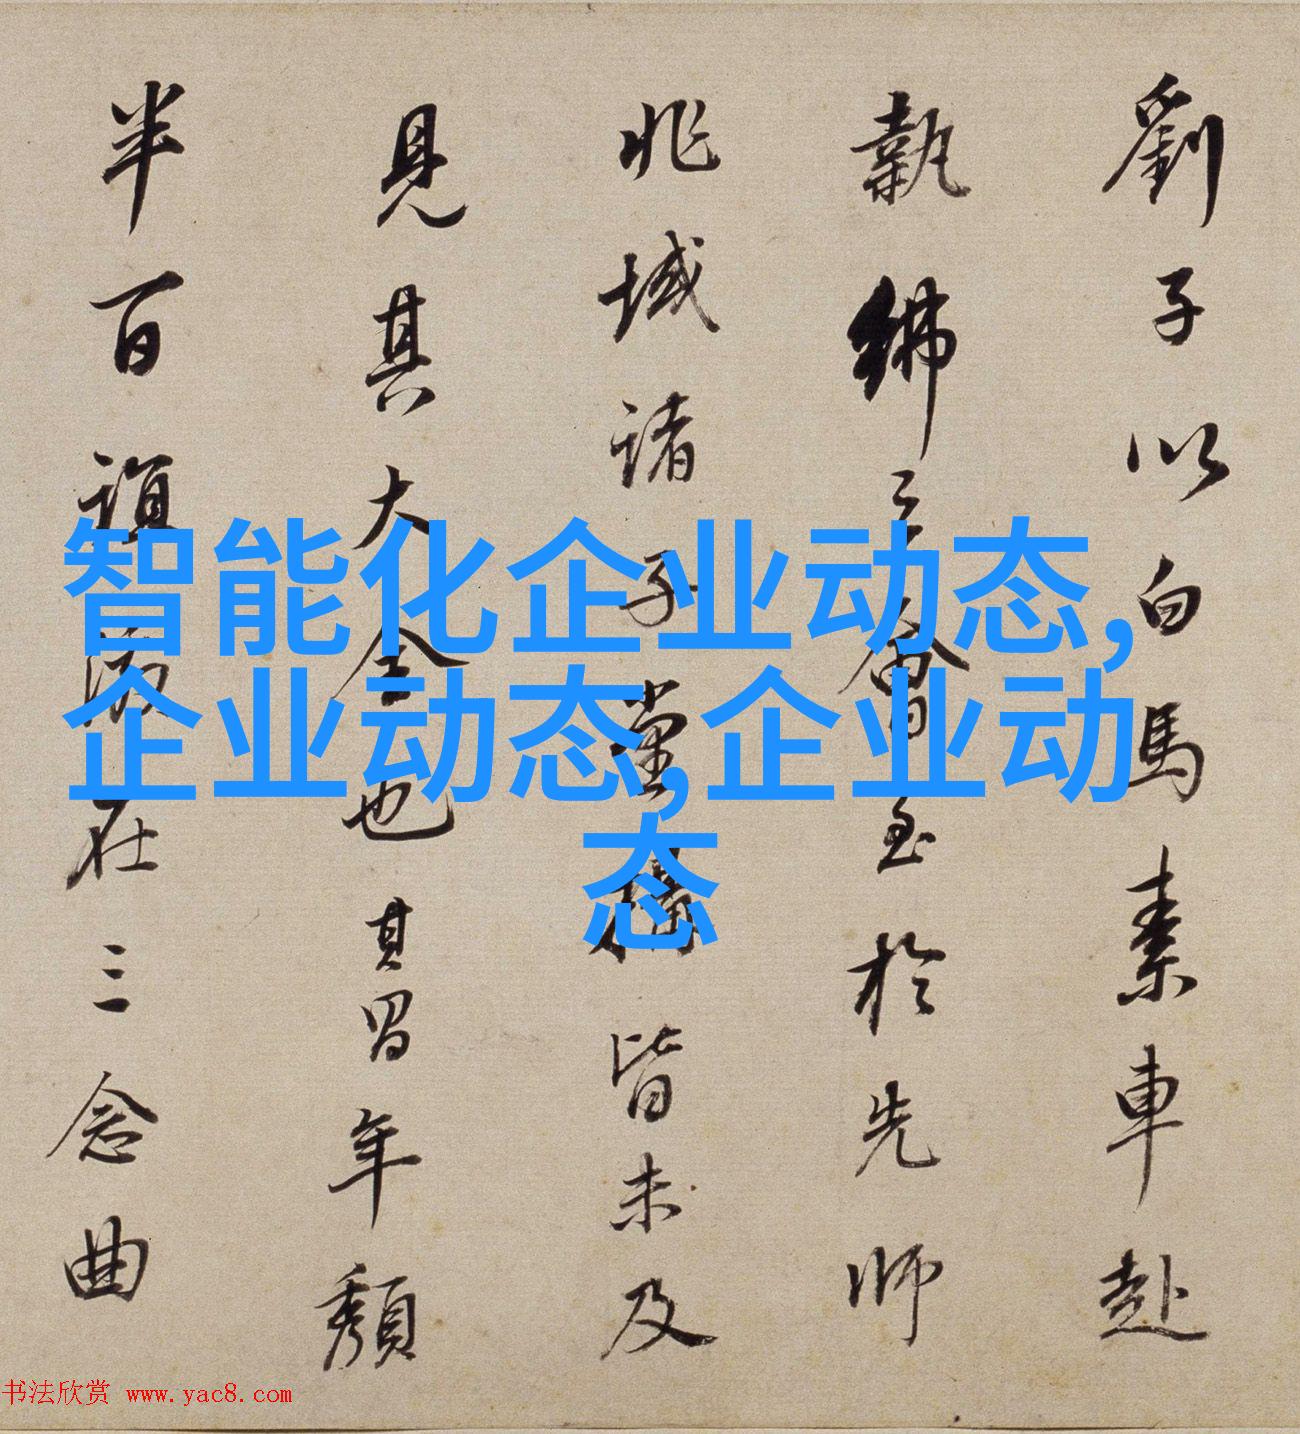 劉子以白馬素車赴
執紼之會至於先師
兆域諸子堂構皆未及
見其大全也其年頹
半百誼在三念曲
智能化企业动态,
企业动态,企业动
态
书法欣赏 www.yac8.com